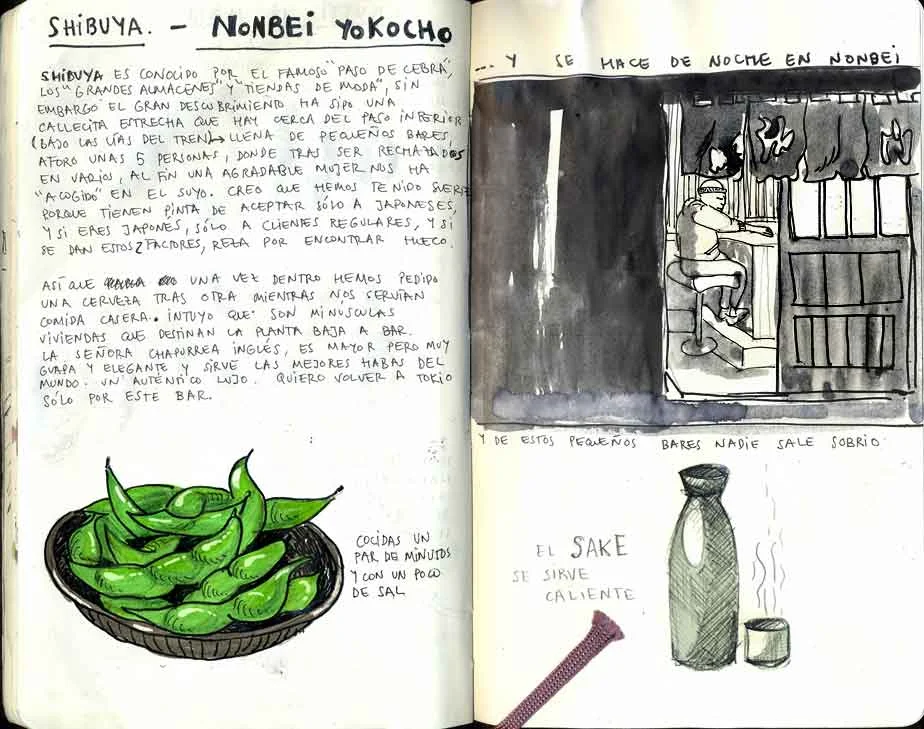 SHIBUYA. - NONBEI YOKOCHO
SHIBUYA ES CONOCIDO POR EL FAMOSO "PASO DE CEBRA",
LOS "GRANDES ALMACENES" Y "TIENDAS DE MODA", SIN
EMBARGO EL GRAN DESCUBRIMIENTO HA SIDO UNA
CALLECITA ESTRECHA QUE HAY CERCA DEL PASO INFERIOR
(BAJO LAS VÍAS DEL TREN) → LLENA DE PEQUEÑOS BARES,
AFORO UNAS 5 PERSONAS, DONDE TRAS SER RECHAZADOS
EN VARIOS, AL FIN UNA AGRADABLE MUJER NOS HA
"ACOGIDO" EN EL SUYO. CREO QUE HEMOS TENIDO SUERTE
PORQUE TIENEN PINTA DE ACEPTAR SÓLO A JAPONESES,
Y SI ERES JAPONÉS, SÓLO A CLIENTES REGULARES, Y SI
SE DAN ESTOS 2 FACTORES, REZA POR ENCONTRAR HUECO.
ASÍ QUE UNA VEZ DENTRO HEMOS PEDIDO
UNA CERVEZA TRAS OTRA MIENTRAS NOS SERVÍAN
COMIDA CASERA. INTUYO QUE SON MINÚSCULAS
VIVIENDAS QUE DESTINAN LA PLANTA BAJA A BAR.
LA SEÑORA CHAPURREA INGLÉS, ES MAYOR PERO MUY
GUAPA Y ELEGANTE Y SIRVE LAS MEJORES HABAS DEL
MUNDO. UN AUTÉNTICO LUJO. QUIERO VOLVER A TOKIO
SÓLO POR ESTE BAR.
COCIDAS UN
PAR DE MINUTOS
Y CON UN POCO
DE SAL
... Y SE HACE DE NOCHE EN NONBEI
Y DE ESTOS PEQUEÑOS BARES NADIE SALE SOBRIO
EL SAKE
SE SIRVE
CALIENTE